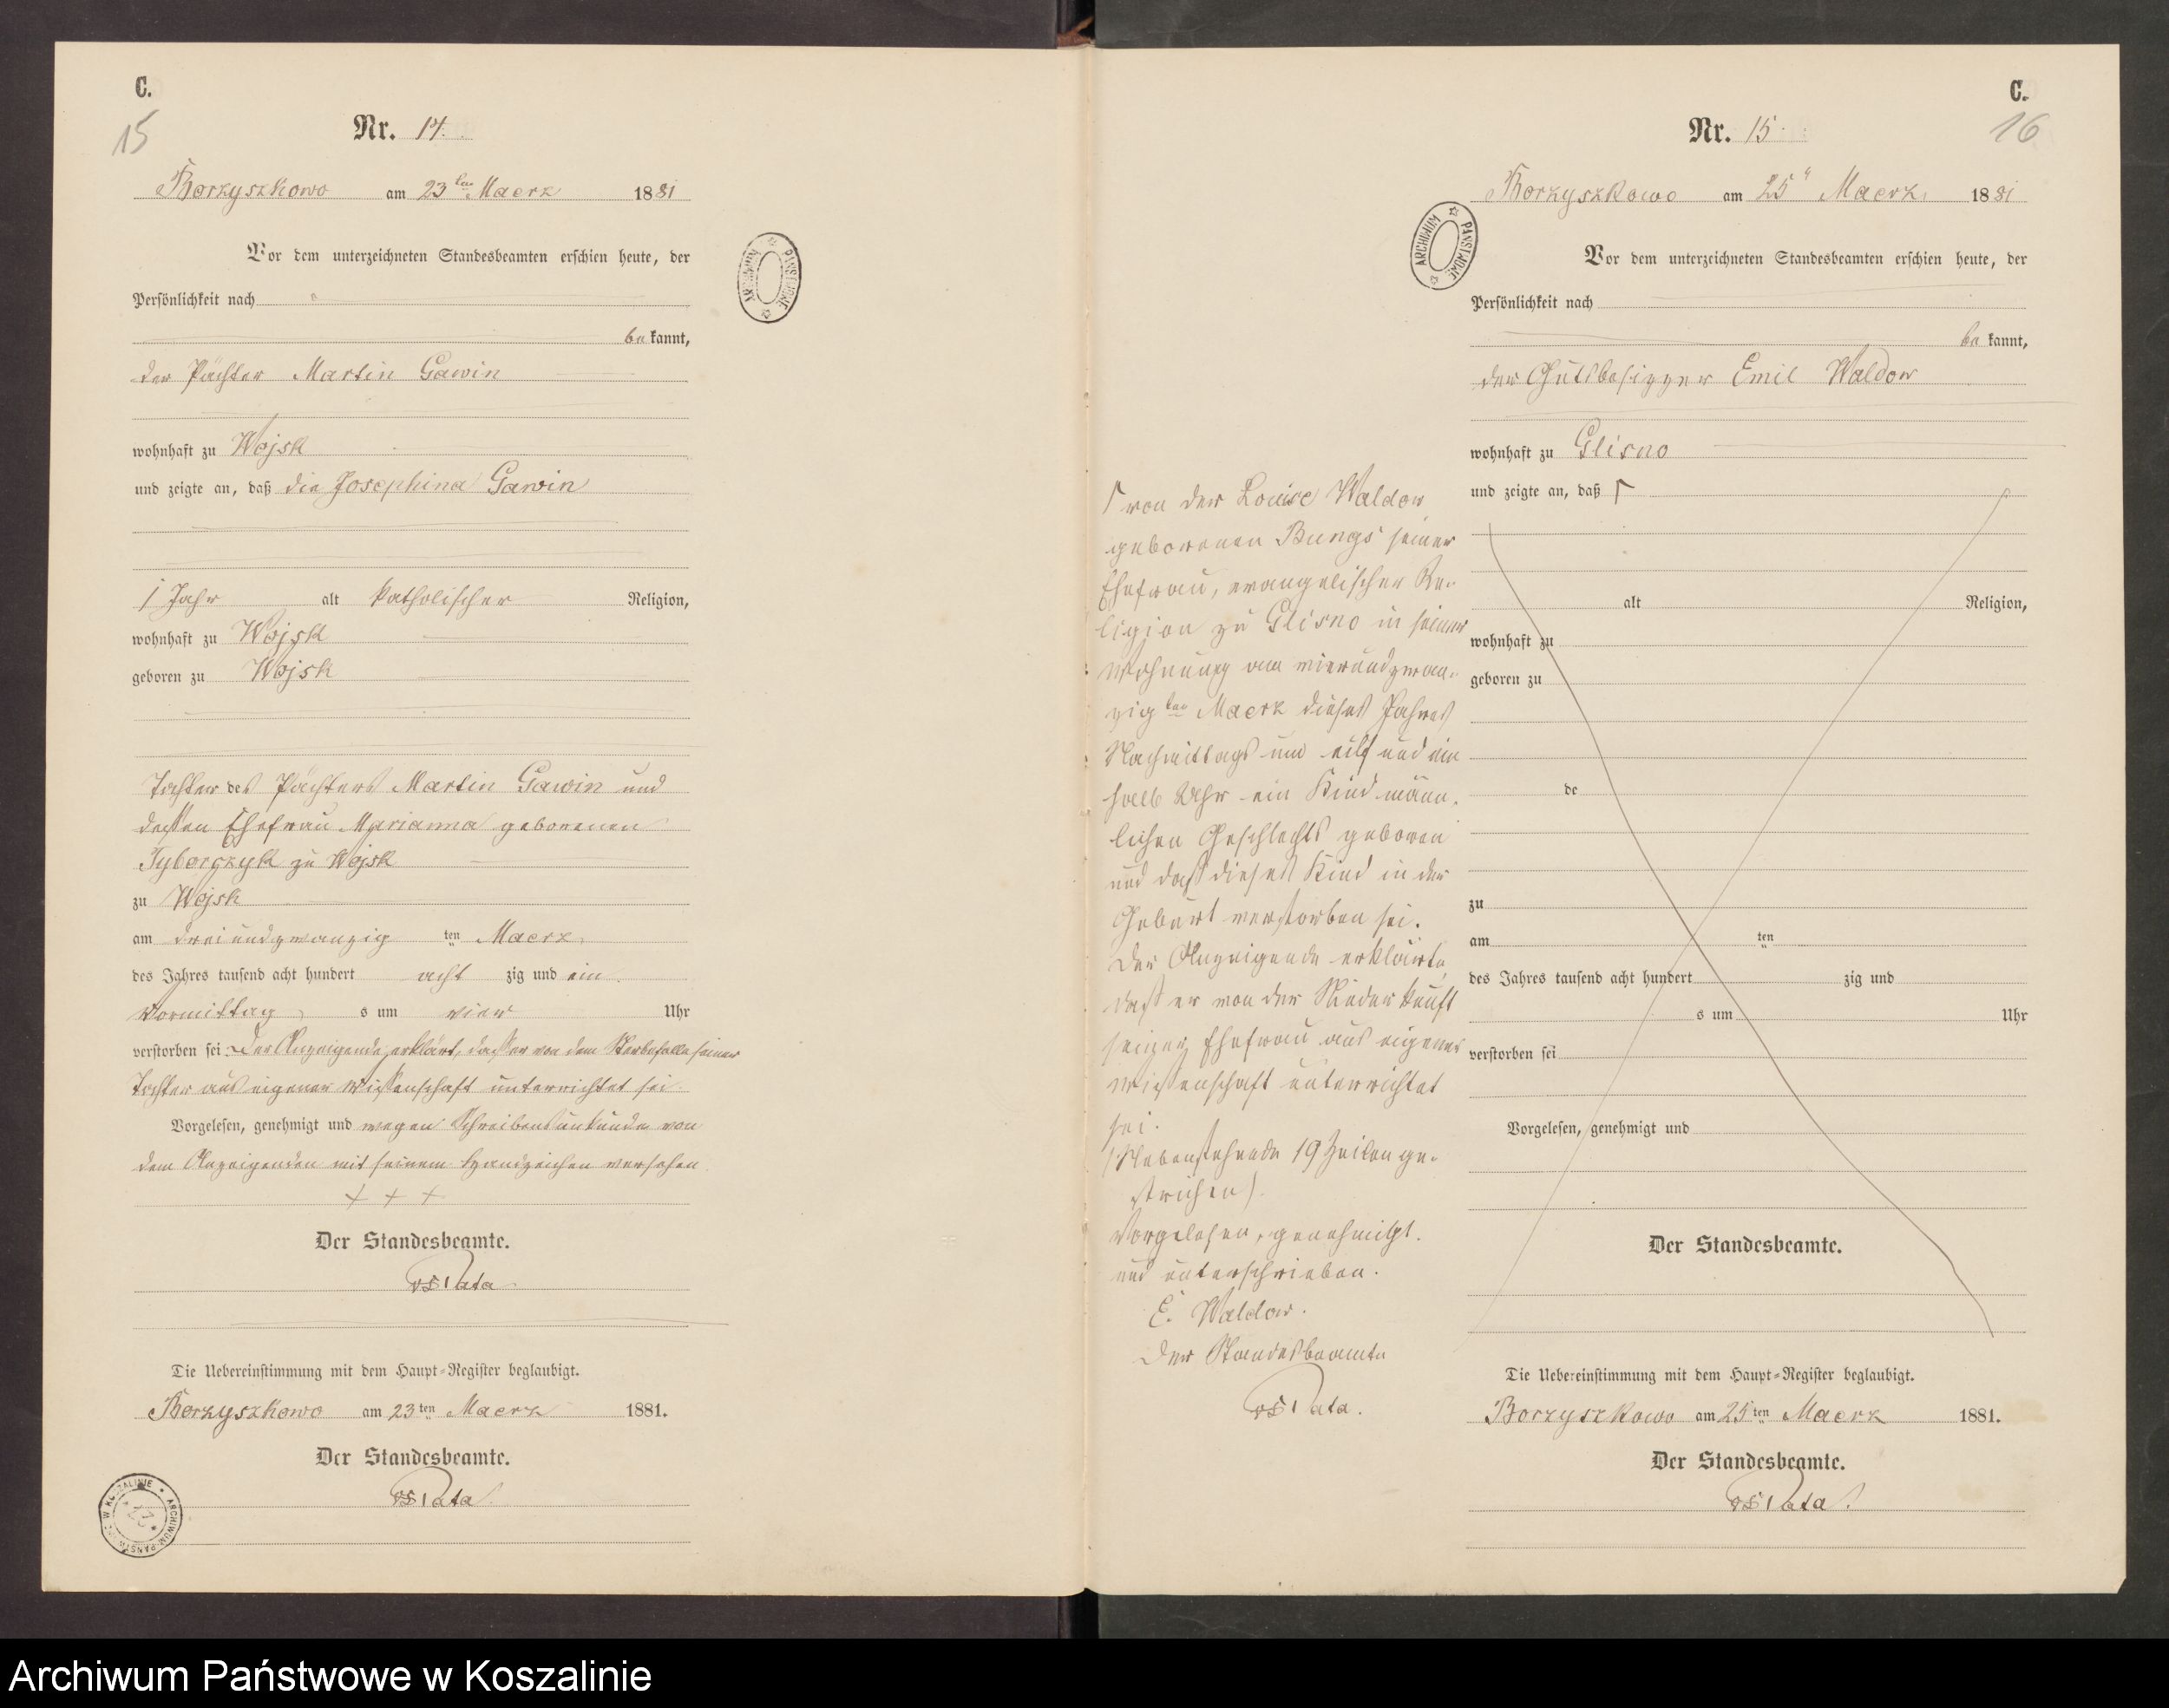 C.
15
Nr. 14.
Borzyszkowo am 23ten Maerz 1881
Vor dem unterzeichneten Standesbeamten erschien heute, der
Persönlichkeit nach
bekannt,
der Pächter Martin Gawin
wohnhaft zu Wojsk
und zeigte an, daß die Josephina Gawin
1 Jahr alt katholischer Religion,
wohnhaft zu Wojsk
geboren zu Wojsk
Tochter des Pächters Martin Gawin und
dessen Ehefrau Marianna geborenen
Tyborczyk zu Wojsk
zu Wojsk
am dreiundzwanzig ten Maerz
des Jahres tausend acht hundert acht zig und ein
Vormittag s um vier Uhr
verstorben sei. Der Anzeigende erklärt, dass er von dem Sterbefalle seiner
Tochter aus eigener Wissenschaft unterrichtet sei
Vorgelesen, genehmigt und wegen Schreibensunkunde von
dem Anzeigenden mit seinem Handzeichen versehen
+ + +
Der Standesbeamte.
Die Uebereinstimmung mit dem Haupt-Register beglaubigt.
Borzyszkowo am 23ten Maerz 1881.
Der Standesbeamte.
ARCHIWUM PAŃSTWOWE
ARCHIWUM PAŃSTWOWE W KOSZALINIE
C.
16
Nr. 15.
Borzyszkowo am 25" Maerz 1881
ARCHIWUM PAŃSTWOWE
Vor dem unterzeichneten Standesbeamten erschien heute, der
Persönlichkeit nach
bekannt,
der Gutsbesitzer Emil Waldow
wohnhaft zu Glisno
und zeigte an, daß Γ
alt Religion,
wohnhaft zu
geboren zu
de
zu
am ten
des Jahres tausend acht hundert zig und
s um Uhr
verstorben sei
Vorgelesen, genehmigt und
Der Standesbeamte.
Γ von der Louise Waldow
geborenen Bungs seiner
Ehefrau, evangelischer Re-
ligion zu Glisno in seiner
Wohnung am vierundzwan-
zigten Maerz dieses Jahres
Nachmittags um eilf und ein
halb Uhr ein Kind männ-
lichen Geschlechts geboren
und daß dieses Kind in der
Geburt verstorben sei.
Der Anzeigende erklärte,
daß er von der Niederkunft
seiner Ehefrau aus eigener
Wissenschaft unterrichtet
sei.
(Nebenstehende 19 Zeilen ge-
strichen).
Vorgelesen, genehmigt.
und unterschrieben.
E. Waldow.
Der Standesbeamte
Die Uebereinstimmung mit dem Haupt-Register beglaubigt.
Borzyszkowo am 25ten Maerz 1881.
Der Standesbeamte.
Archiwum Państwowe w Koszalinie